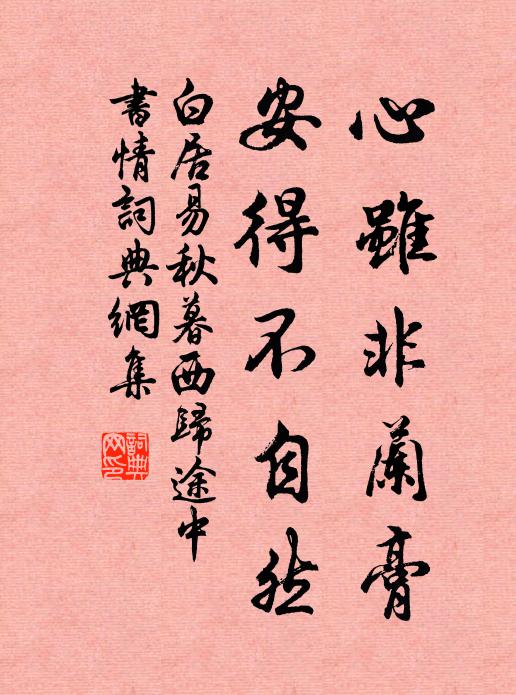 心雖非蘭膏
安得不自然
白居易秋暮西歸途中
書情詞典網集
詞典網印